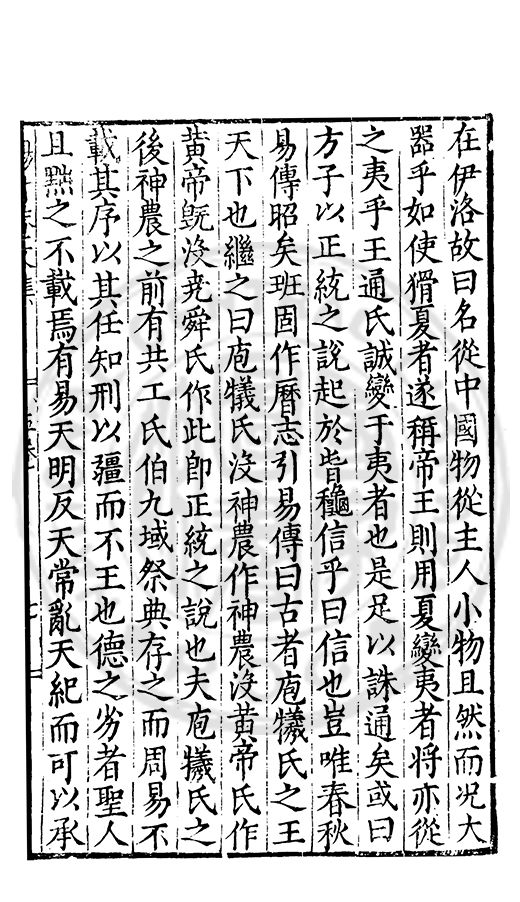 在伊洛故曰名從中國物從主人小物且然而况大
器乎如使猾夏者遂稱帝王則用夏變夷者將亦從
之夷乎王通氏誠變于夷者也是足以誅通矣或曰
方子以正統之說起於皆龝信乎曰信也豈唯春秋
易傳昭矣班固作曆志引易傳曰古者庖犧氏之王
天下也繼之曰庖犧氏沒神農作神農沒黃帝氏作
黃帝旣沒堯舜氏作此卽正統之說也夫庖犧氏之
後神農之前有共工氏伯九域祭典存之而周易不
載其序以其任知刑以疆而不王也德之劣者聖人
且黜之不載焉有易天明反天常亂天紀而可以承